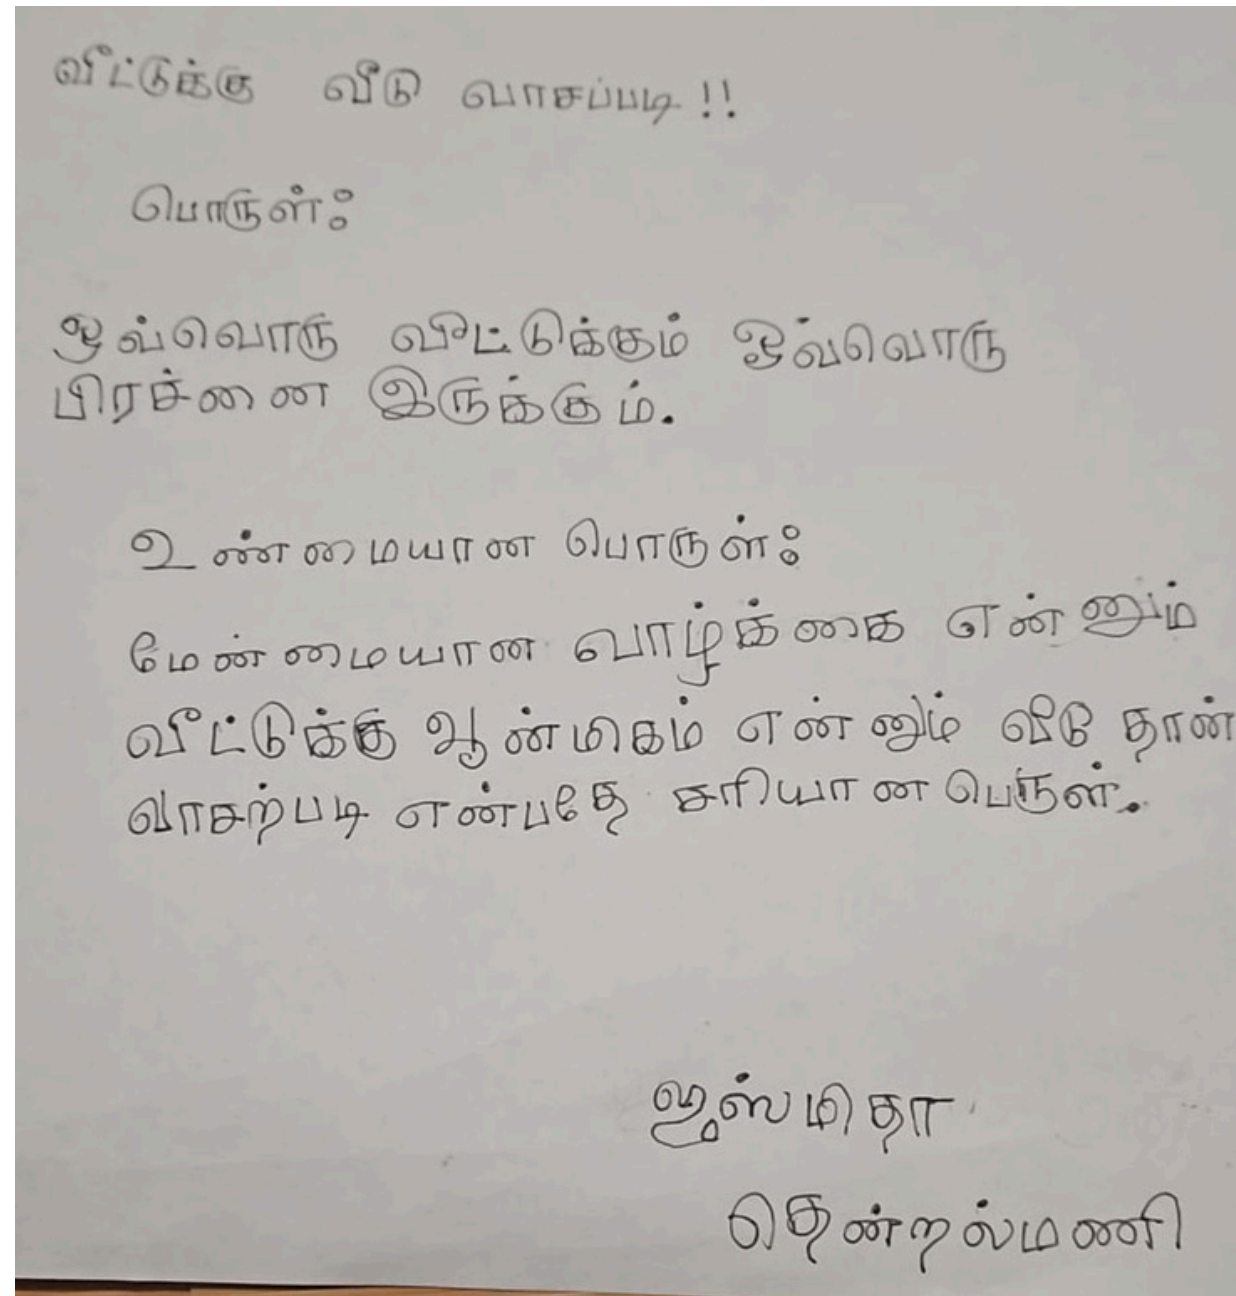 வீட்டுக்கு வீடு வாசப்படி!!
பொருள்:
ஒவ்வொரு வீட்டுக்கும் ஒவ்வொரு
பிரச்னை இருக்கும்.
உண்மையான பொருள்:
மேன்மையான வாழ்க்கை என்னும்
வீட்டுக்கு ஆன்மிகம் என்னும் வீடு தான்
வாசற்படி என்பதே சரியான பெருள்.
ஜஸ்மிதா
தென்றல்மணி